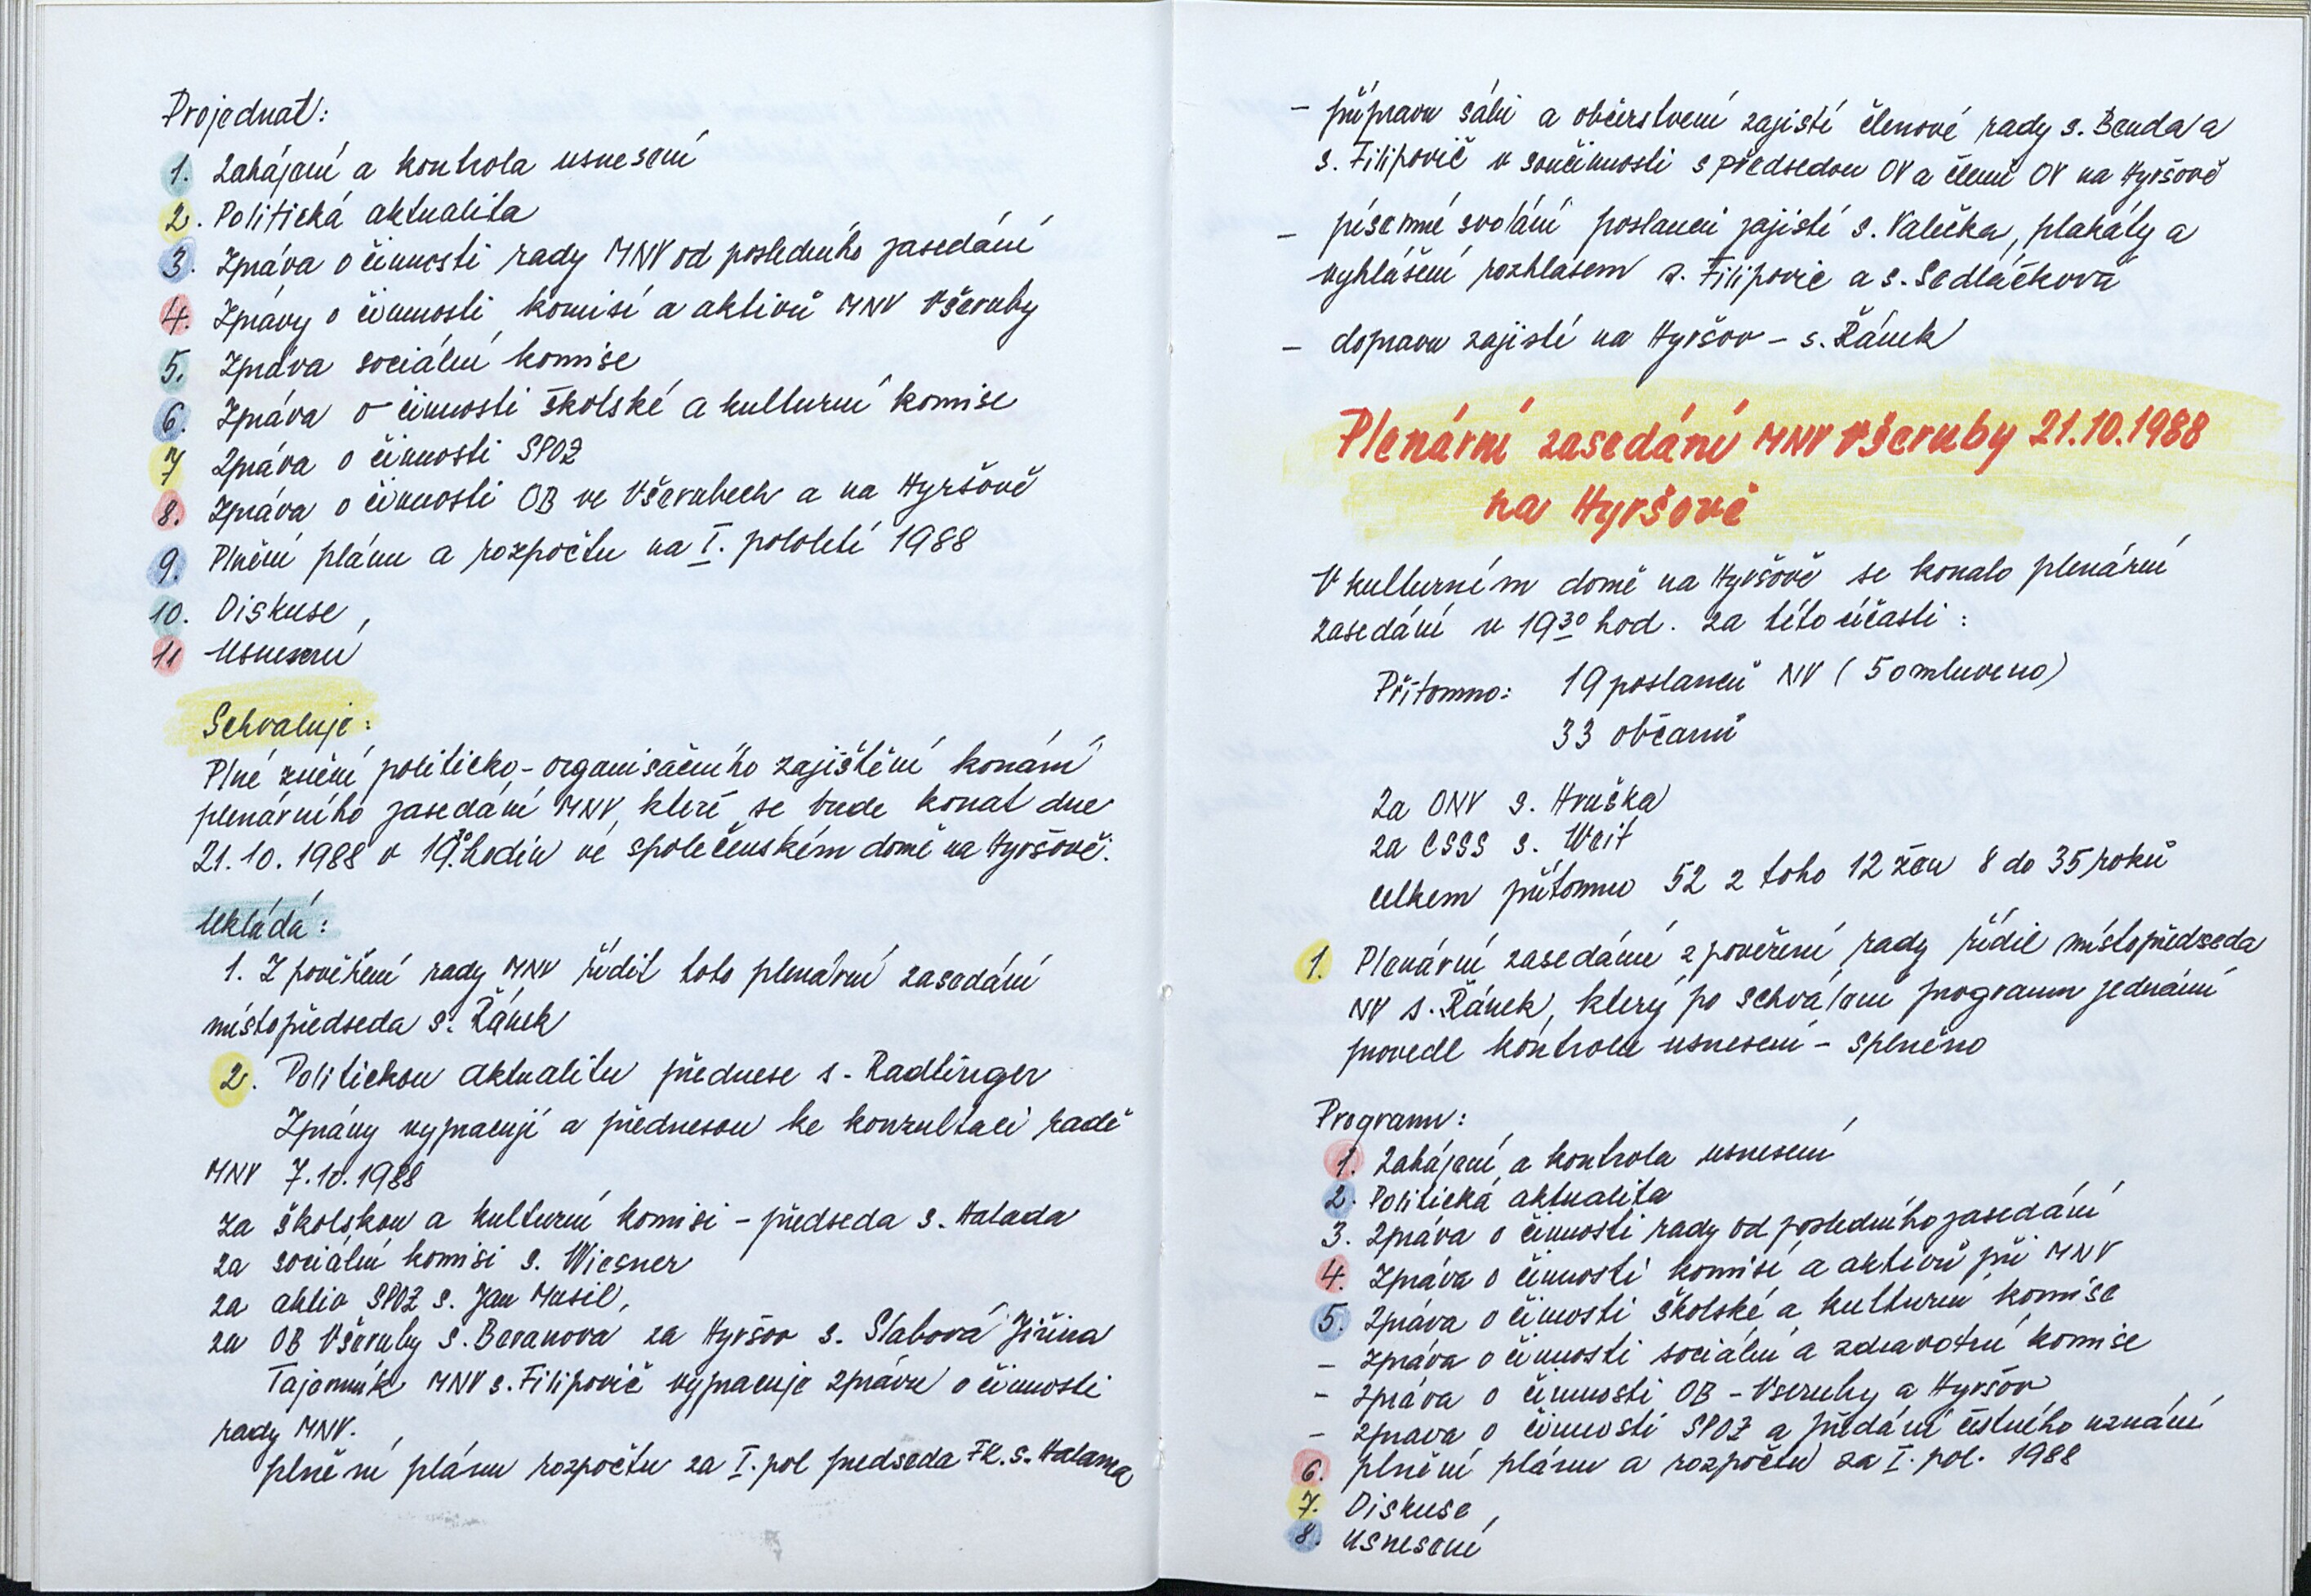 Projednat:
1. Zahájení a kontrola usnesení
2. Politická aktualita
3. Zpráva o činnosti rady MNV od posledního zasedání
4. Zprávy o činnosti komisí a aktivů MNV Všeruby
5. Zpráva sociální komise
6. Zpráva o činnosti školské a kulturní komise
7 Zpráva o činnosti SPOZ
8. Zpráva o činnosti OB ve Všerubech a na Hyršově
9. Plnění plánu a rozpočtu na I. pololetí 1988
10. Diskuse,
11 Usnesení
Schvaluje:
Plné znění politicko-organisačního zajištění konání
plenárního zasedání MNV, které se bude konat dne
21.10.1988 v 19.30 hodin ve společenském domě na Hyršově.
Ukládá:
1. Z pověření rady MNV řídit toto plenární zasedání
místopředseda s. Řánek
2. Politickou aktualitu přednese s. Radlinger
Zprávy vypracují a přednesou ke konzultaci radě
MNV 7.10.1988
za školskou a kulturní komisi - předseda s. Halada
za sociální komisi s. Wiesner
za aktiv SPOZ s. Jan Musil,
za OB Všeruby s. Beranova za Hyršov s. Slabová Jiřina
Tajemník MNV s. Filipovič vypracuje zprávu o činnosti
rady MNV.
plnění plánu rozpočtu za I. pol předseda FK. s. Halama
- přípravu sálu a občerstvení zajistí členové rady s. Benda a
s. Filipovič v součinnosti s předsedou OV a členů OV na Hyršově
- písemné svolání poslanců zajistí s. Valečka, plakáty a
vyhlášení rozhlasem s. Filipovic a s. Sedláčková
- dopravu zajistí na Hyršov - s. Řánek
Plenární zasedání MNV Všeruby 21.10.1988
na Hyršově
V kulturním domě na Hyršově se konalo plenární
zasedání v 19 30 hod. za této účasti:
Přítomno: 19 poslanců NV (5 omluveno)
33 občanů
za ONV s. Hruška
za CSSS s. Weit
celkem přítomno 52 z toho 12 žen 8 do 35 roků
1. Plenární zasedání z pověření rady řídil místopředseda
NV s. Řánek, který po schválení programu jednání
provedl kontrolu usnesení - splněno
Program:
1. Zahájení a kontrola usnesení
2. Politická aktualita
3. Zpráva o činnosti rady od posledního zasedání
4. Zpráva o činnosti komisí a aktivů při MNV
5. Zpráva o činosti školské a kulturní komise
- zpráva o činnosti sociální a zdravotní komise
- zpráva o činnosti OB - Vseruby a Hyršov
- zprava o činnosti SPOZ a předání čestného uznání
6. plnění plánu a rozpočtu za I. pol. 1988
7. Diskuse,
8. Usnesení